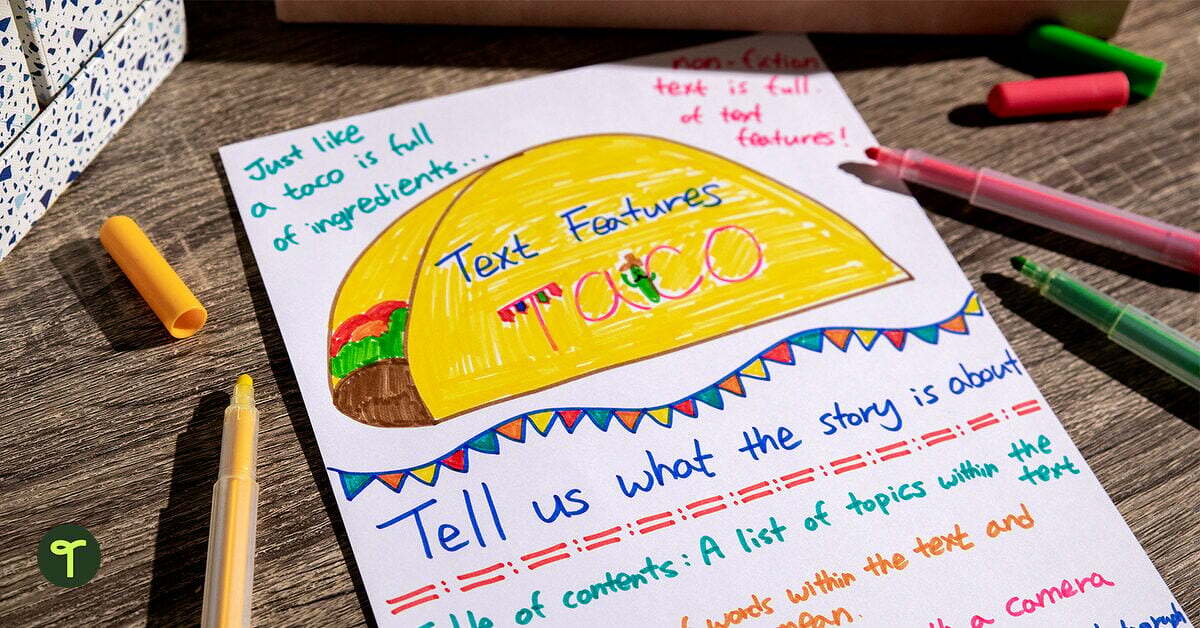 Just like
a taco is full
of ingredients...
non-fiction
text is full
of text
features!
Text Features
Taco
Tell us what the story is about
Table of contents: A list of topics within the
text
words within the text and
mean.
with a camera